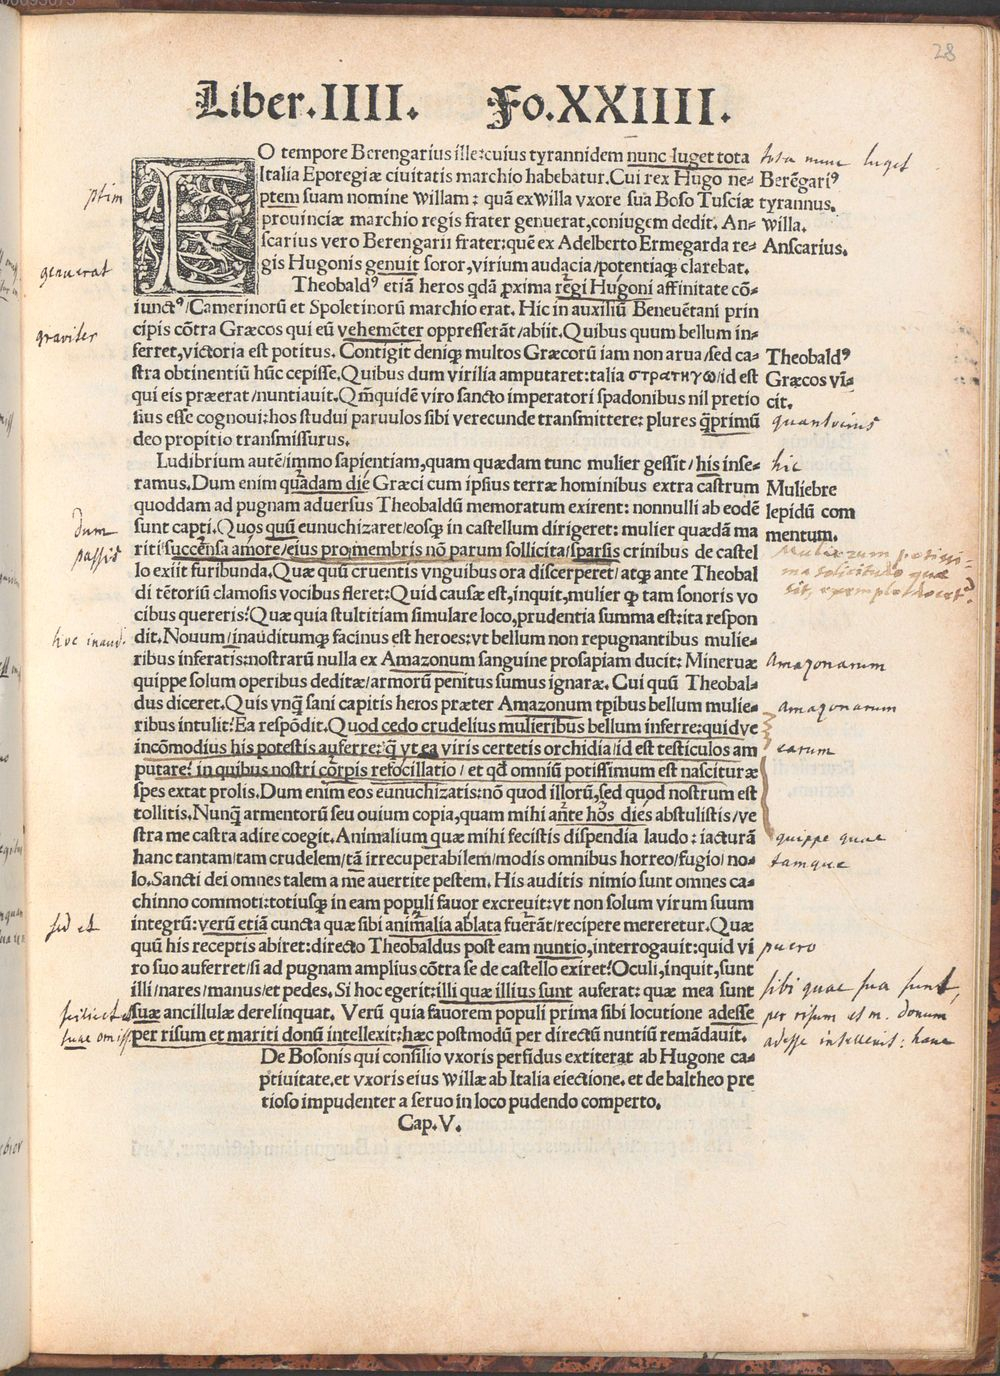 28
Liber.IIII. Fo.XXIIII.
EO tempore Berengarius ille:cuius tyrannidem nunc luget tota
Italia Eporegiæ ciuitatis marchio habebatur.Cui rex Hugo ne-
ptem suam nomine Willam: quā ex willa vxore sua Boso Tusciæ
prouinciæ marchio regis frater genuerat,coniugem dedit. An-
scarius vero Berengarii frater:quē ex Adelberto Ermegarda re-
gis Hugonis genuit soror,virium audacia/potentiaq; clarebat.
Theobaldꝰ etiā heros q̄dā p̱xima regi Hugoni affinitate cō-
iunctꝰ/Camerinorū et Spoletinorū marchio erat. Hic in auxiliū Beneuētani prin
cipis cōtra Græcos qui eū vehemēter oppresserāt/abiit.Quibus quum bellum in-
ferret,victoria est potitus. Contigit deniq; multos Græcorū iam non arua/sed ca-
stra obtinentiū hūc cepisse.Quibus dum virilia amputaret:talia στρατηγω/id est
qui eis præerat/nuntiauit.Qm̄quidē viro sancto imperatori spadonibus nil pretio
sius esse cognoui:hos studui paruulos sibi verecunde transmittere: plures q̄primū
deo propitio transmissurus.
Ludibrium autē/immo sapientiam,quam quædam tunc mulier gessit/his inse-
ramus.Dum enim quādam diē Græci cum ipsius terræ hominibus extra castrum
quoddam ad pugnam aduersus Theobaldū memoratum exirent: nonnulli ab eodē
sunt capti.Quos quū eunuchizaret/eosq; in castellum dirigeret: mulier quædā ma
riti/succēsa amore/eius pro/membris nō parum sollicita/sparsis crinibus de castel
lo exiit furibunda.Quæ quū cruentis vnguibus ora discerperet/atq; ante Theobal
di tētoriū clamosis vocibus fleret:Quid causæ est,inquit,mulier q̱ tam sonoris vo
cibus quereris?Quæ quia stultitiam simulare loco,prudentia summa est:ita respon
dit.Nouum/inauditumq; facinus est heroes:vt bellum non repugnantibus mulie-
ribus inferatis:nostrarū nulla ex Amazonum sanguine prosapiam ducit: Mineruæ
quippe solum operibus deditæ/armorū penitus sumus ignaræ. Cui quū Theobal-
dus diceret.Quis vnq̄ sani capitis heros præter Amazonum tp̄ibus bellum mulie-
ribus intulit?Ea respōdit.Quod cedo crudelius mulieribus bellum inferre:quidve
incōmodius his potestis auferre:q̄ vt ea viris certetis orchidia/id est testiculos am
putare? in quibus nostri cōrpis refocillatio/et qđ omniū potissimum est nascituræ
spes extat prolis.Dum enim eos eunuchizatis:nō quod illorū,sed quod nostrum est
tollitis.Nunq̄ armentorū seu ouium copia,quam mihi añte hōs dies abstulistis/ve
stra me castra adire coegit.Animalium quæ mihi fecistis dispendia laudo: iacturā
hanc tantam/tam crudelem/tā irrecuperabilem/modis omnibus horreo/fugio/no-
lo.Sancti dei omnes talem a me auertite pestem. His auditis nimio sunt omnes ca-
chinno commoti:totiusq; in eam populi fauor excreuit:vt non solum virum suum
integrū: verū etiā cuncta quæ sibi animalia ablata fuerāt/recipere mereretur.Quæ
quū his receptis abiret:directo Theobaldus post eam nuntio,interrogauit:quid vi
ro suo auferret/si ad pugnam amplius cōtra se de castello exiret?Oculi,inquit,sunt
illi/nares/manus/et pedes. Si hoc egerit:illi quæ illius sunt auferat: quæ mea sunt
suæ ancillulæ derelinquat. Verū quia fauorem populi prima sibi locutione adesse
per risum et mariti donū intellexit:hæc postmodū per directū nuntiū remādauit.
De Bosonis qui consilio vxoris perfidus extiterat ab Hugone ca-
ptiuitate.et vxoris eius Willæ ab Italia eiectione. et de baltheo pre
tioso impudenter a seruo in loco pudendo comperto.
Cap.V.
tota nunc luget
Berēgariꝰ
tyrannus.
willa.
Anscarius.
Theobaldꝰ
Græcos vi-
cit.
quantocius
hic
Muliebre
lepidū com
mentum.
Amazonarum
amazonarum
earum
quippe quae
tamque
puero
sibi quae sua sunt,
per risum et m. donum
adesse intellexit: hanc
ptim
genuerat
graviter
Dum
passis
hoc inaud.
sed et